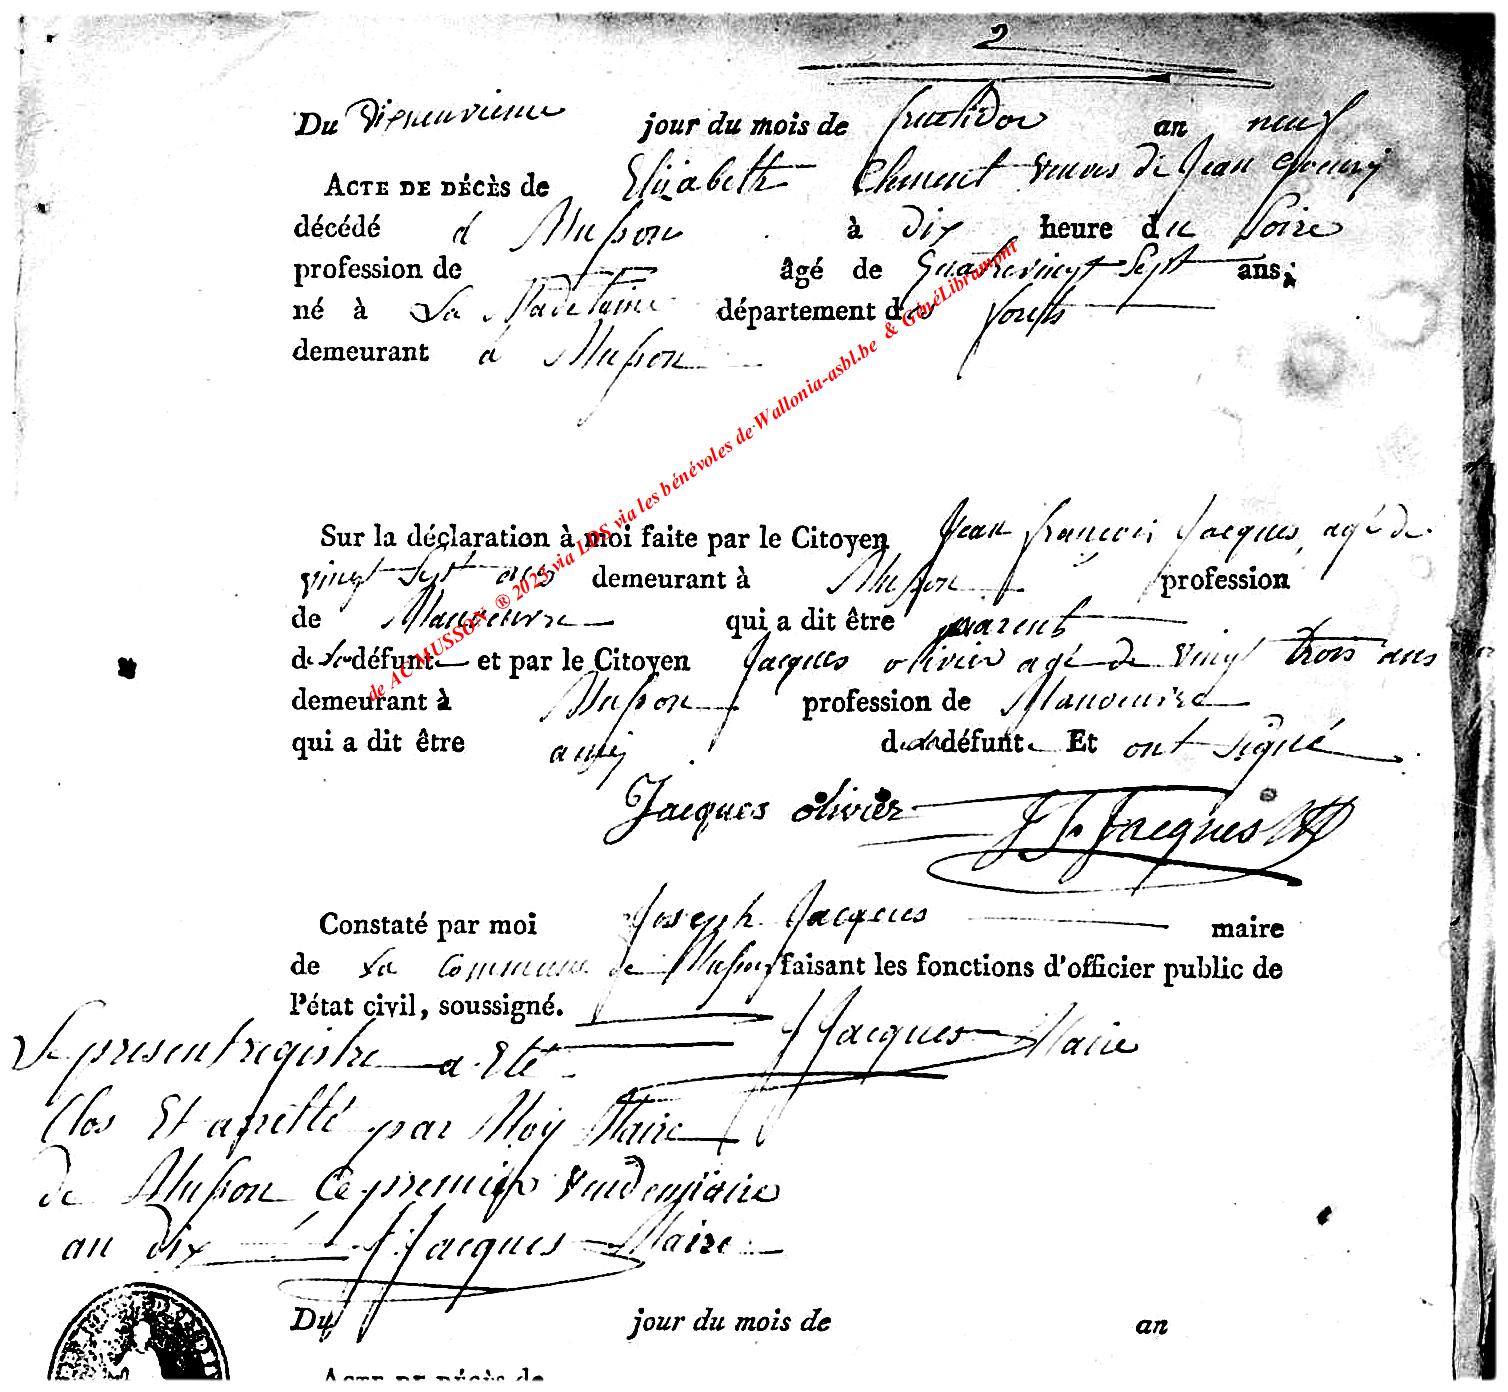 2
Du Dixneuvieme jour du mois de fructidor an neuf
ACTE DE DÉCÈS de Elizabeth Clement veuve de Jean
décédé a Musson à dix heure du Soire
profession de âgé de quatrevingt Sept ans;
né à La Madelaine département de forets
demeurant a Musson
Sur la déclaration à moi faite par le Citoyen Jean françois Jacques, agé de
vingt Sept ans demeurant à Musson profession
de Manoeuvre qui a dit être parent
de la défunte et par le Citoyen Jacques olivier agé de vingt trois ans
demeurant à Musson profession de Manouvre
qui a dit être amij de la défunte Et ont Signé
Jacques olivier J f Jacques
Constaté par moi Joseph Jacques maire
de La Commune de Musson faisant les fonctions d'officier public de
l'état civil, soussigné.
J Jacques Maire
Le present registre a Eté
Clos Et arretté par Moÿ Maire
de Musson Ce premier Vendemiaire
an dix J Jacques Maire
Du jour du mois de an
ACTE DE DÉCÈS de
de AC MUSSON ® 2023 via LDS via les bénévoles de Wallonia-asbl.be & GénéLibramont